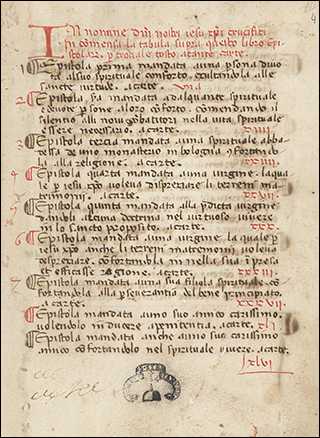 In nomine dñi nostri iesu xp̃i crucifixi
Incomensa la tabula supra questo libro epi
stolare p̲ trovale tosto, ate ante carte.
1 Epistola prima mandata ad una p̲sona divo
ta al suo spirituale conforto. exultandola alle
sancte virtude. acarte.
2 Epistola 2a mandata ad alquante spirituale
e divote p̲sone al loro cõforto. comendando il
silentio alli novi habitatori nella vita spirituale
essere necessario. acarte. XVIIII
3 Epistola tercia mandata ad una spirituale abba
tessa de uno monasterio in bologna. cõfortando
la alla religione. acarte. XXIIII
4 Epistola quarta mandata ad una virgine. laqua
le p̲ iesu xp̃o voleva dispreziare li terreni ma
trimonii. acarte. XXVII
5 Epistola quinta mandata alla p̲dicta virgine
dandoli alcuna doctrina nel virtuoso vivere
in lo sancto proposito. acarte. XXX
6 Epistola mandata ad una virgine. la quale p̲
iesu xp̃o anche li terreni matremonii voleva
despreziare. cõfortandola in nella sua impresa
cũ efficasse ragione. acarte. XXXIII
7 Epistola mandata ad una sua filiola spirituale. cõ
fortandola alla p̲severantia del bene principiato.
acarte. XXXVII
Epistola mandata ad uno suo amico carissimo.
volendolo inducere a penitentia. acarte. XLI
Epistola mandata ad uno anche suo carissimo
amico cõfortandolo nel spirituale vivere. acarte.
XLVI